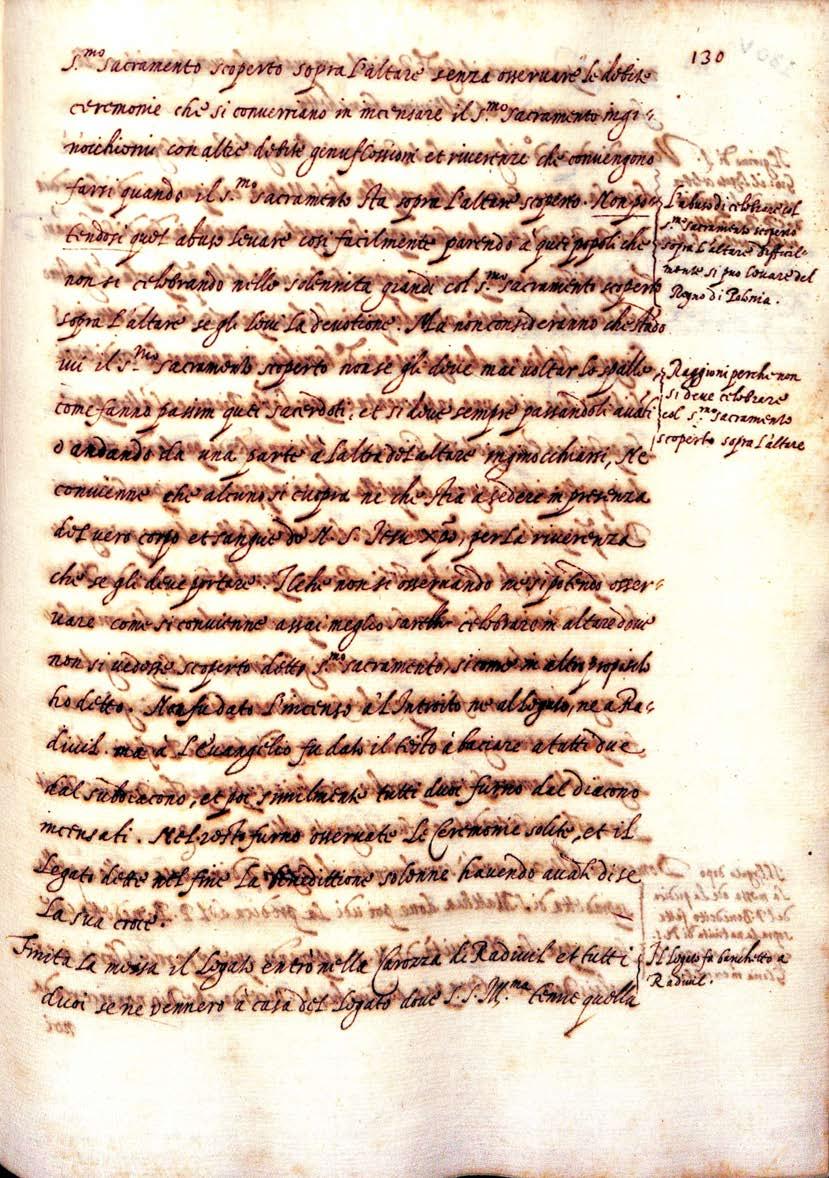 130
S.mo sacramento scoperto sopra L'altare senza osseruare le debite
ceremonie che si conuerriano in incensare il S.mo sacramento ingi=
nocchionis con altre debite genuflessioni et riuerenze che conuengono
farsi quando il S.mo sacramento sta sopra L'altare scoperto. Non po=
tendosi quel abuso leuare cosi facilmente parendo à quei popoli che
non si celebrando nelle solennita grandi col S.mo sacramento scoperto
sopra L'altare se gli leui la deuotione. Ma non consideranno che stado
iui il S.mo sacramento scoperto non se gli deue mai voltar le spalle
come fanno passim quei sacerdoti, et si deue sempre passandoli auāti
ò andando da una parte a l'altra del altare inginocchiarsi, Ne
conuienne che alcuno si cuopra ne che stia à sedere in presenza
del vero corpo et sangue de N. S. Jesu Xpo, per La riuerenza
che se gli deue portare. Il che non si osseruando ne si potendo osser=
uare come si conuienne assai meglio sarebbe celebrare in altare doue
non si vedesse scoperto detto S.mo sacramento, si come in altri propositi
ho detto. Non fu dato l'incenso à l'Introito ne al Legato, ne a Ra=
diuil. mà à L'Euangelio fu dato il testo à baciare a tutti due
dal subdiacono, et poi similmente tutti duoi furno dal diacono
incensati. Nel resto furno osseruate le Ceremonie solite, et il
Legato dette nel fine La benedittione solenne hauendo auāti di se
La sua croce.
Finita La messa il Legato entrò nella Carozza di Radiuil et tutti
duoi se ne vennero à casa del Legato doue S. S. Ill.ma tenne quella
L'abuso di celebrare col
S.mo sacramento scoperto
sopra L'altare difficil=
mente si puo leuare del
Regno di Polonia.
Raggioni perche non
si deue celebrare
col S.mo sacramento
scoperto sopra L'altare
Il Legato fa banchetto a
Radiuil.